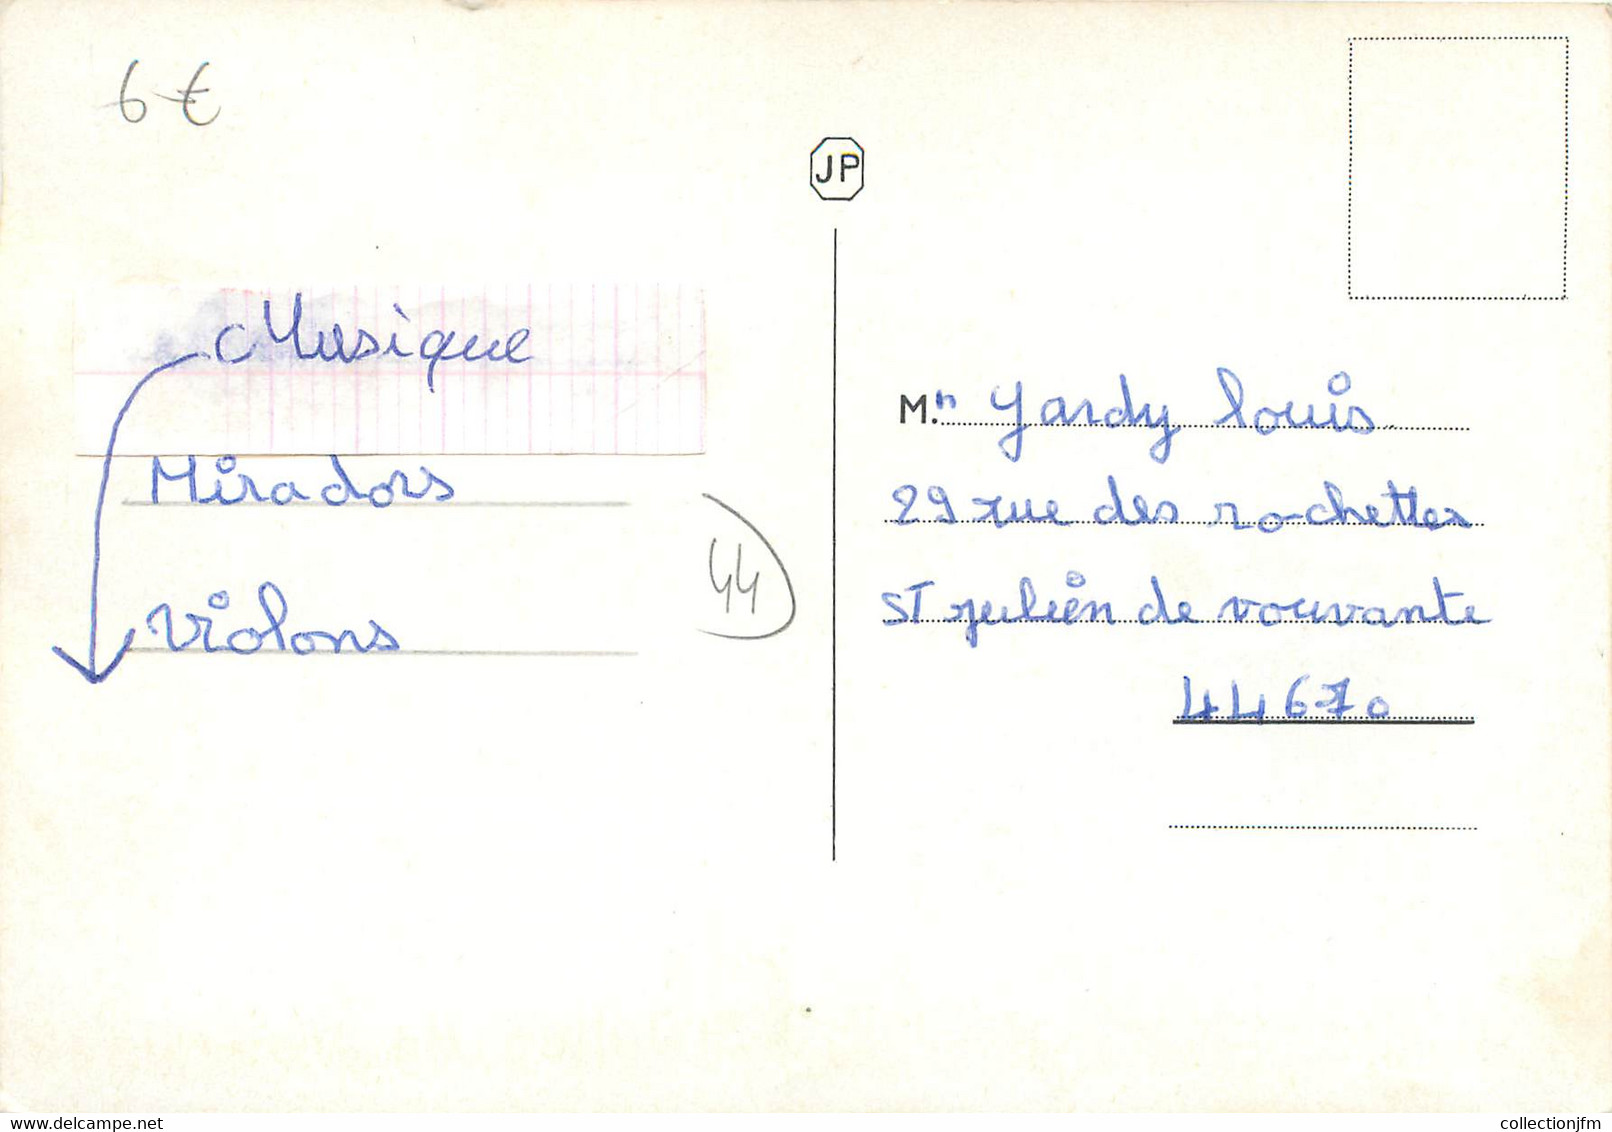 6 €
JP
Musique
Miradors
Violons
44
M.r Jardy Louis
29 rue des rochettes
ST julien de vouvante
44670
collectionjfm